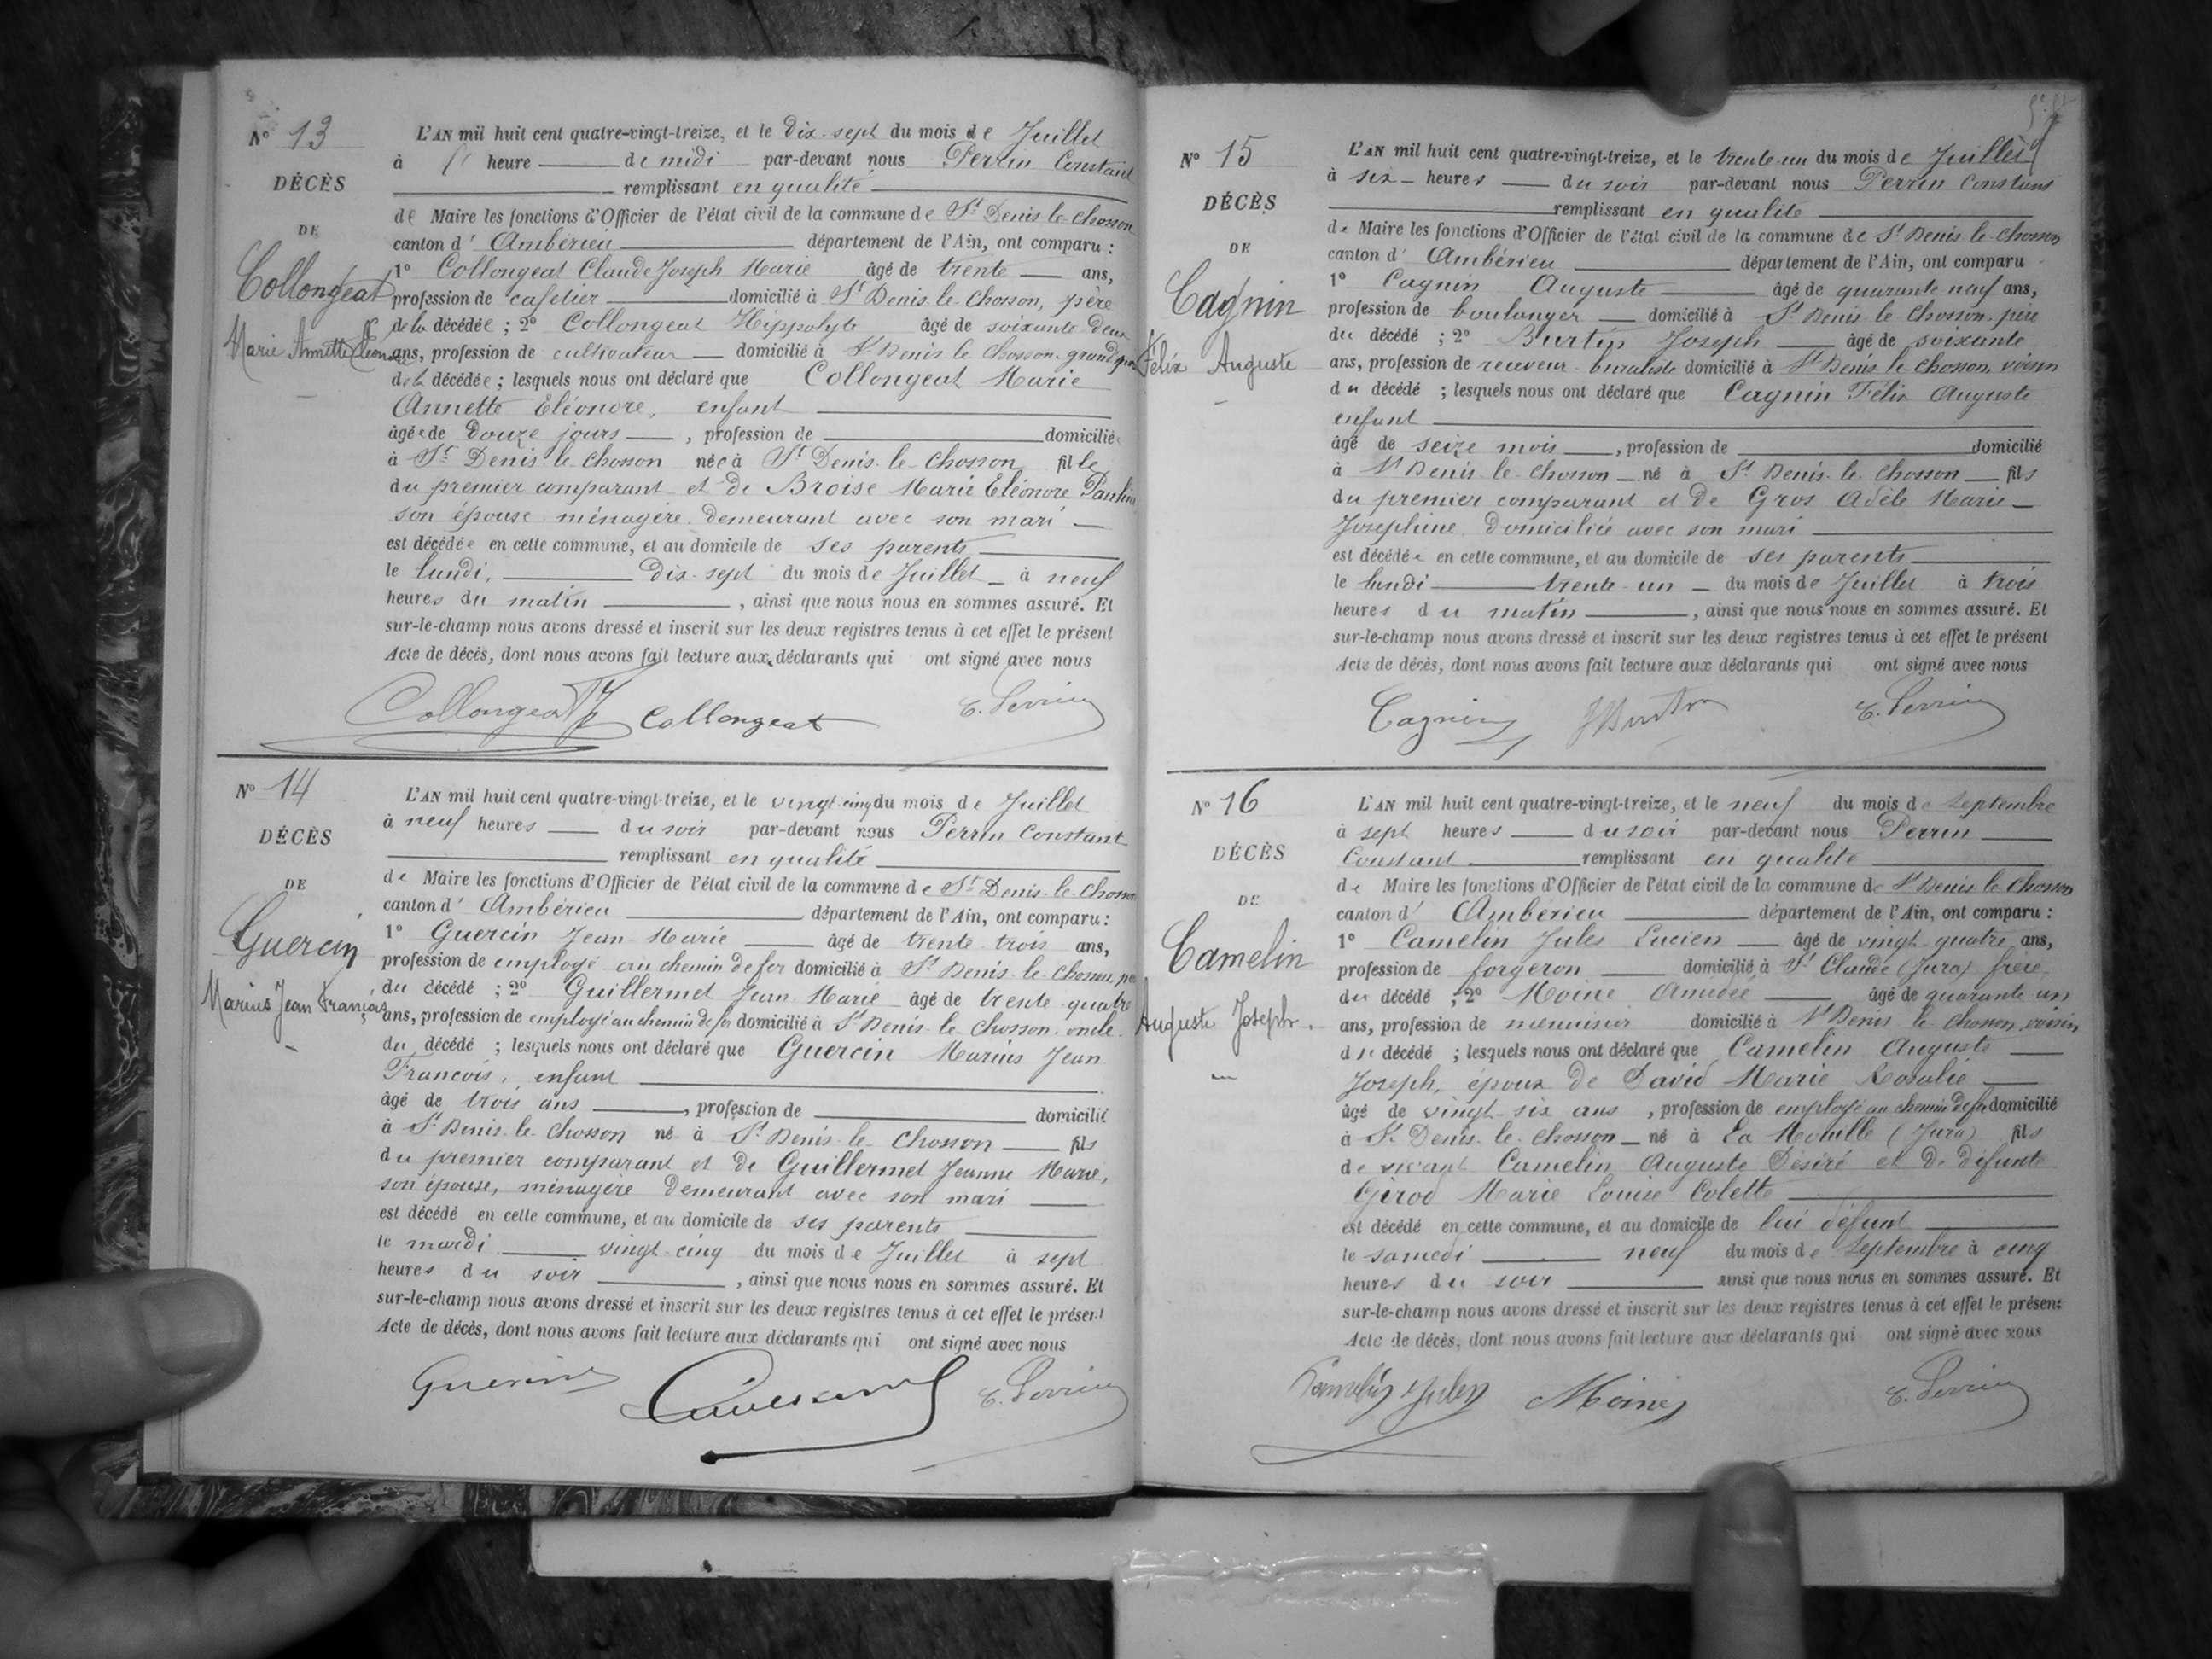 N° 13
DÉCÈS
DE
Collongeat
Marie Annette Eléonore
L'AN mil huit cent quatre-vingt-treize, et le dix-sept du mois de Juillet
à heure de midi par-devant nous Perrin Constant
remplissant en qualité
de Maire les fonctions d'Officier de l'état civil de la commune de St Denis-le-Chosson
canton d'Ambérieu département de l'Ain, ont comparu :
1° Collongeat Claude Joseph Marie âgé de trente ans,
profession de cafetier domicilié à St Denis-le-Chosson, père
de la décédée ; 2° Collongeat Hippolyte âgé de soixante deux
ans, profession de cultivateur domicilié à St Denis le Chosson, grand père
de la décédée ; lesquels nous ont déclaré que Collongeat Marie
Annette Eléonore, enfant
âgée de douze jours, profession de domiciliée
à St Denis-le-Chosson née à St Denis-le-Chosson fille
du premier comparant et de Broise Marie Eléonore Pauline
son épouse ménagère demeurant avec son mari
est décédée en cette commune, et au domicile de ses parents
le lundi, dix-sept du mois de Juillet à neuf
heures du matin, ainsi que nous nous en sommes assuré. Et
sur-le-champ nous avons dressé et inscrit sur les deux registres tenus à cet effet le présent
Acte de décès, dont nous avons fait lecture aux déclarants qui ont signé avec nous
Collongeat Collongeat C. Perrin
N° 14
DÉCÈS
DE
Guercin
Marius Jean François
L'AN mil huit cent quatre-vingt-treize, et le vingt-cinq du mois de Juillet
à neuf heures du soir par-devant nous Perrin Constant
remplissant en qualité
de Maire les fonctions d'Officier de l'état civil de la commune de St Denis-le-Chosson
canton d'Ambérieu département de l'Ain, ont comparu :
1° Guercin Jean Marie âgé de trente-trois ans,
profession de employé au chemin de fer domicilié à St Denis-le-Chosson, père
du décédé ; 2° Guillermet Jean Marie âgé de trente-quatre
ans, profession de employé au chemin de fer domicilié à St Denis-le-Chosson, oncle
du décédé ; lesquels nous ont déclaré que Guercin Marius Jean
François, enfant
âgé de trois ans, profession de domicilié
à St Denis-le-Chosson né à St Denis-le-Chosson fils
du premier comparant et de Guillermet Jeanne Marie,
son épouse, ménagère demeurant avec son mari
est décédé en cette commune, et au domicile de ses parents
le mardi vingt-cinq du mois de Juillet à sept
heures du soir, ainsi que nous nous en sommes assuré. Et
sur-le-champ nous avons dressé et inscrit sur les deux registres tenus à cet effet le présent
Acte de décès, dont nous avons fait lecture aux déclarants qui ont signé avec nous
Guercin C. Perrin
N° 15
DÉCÈS
DE
Cagnin
Félix Auguste
L'AN mil huit cent quatre-vingt-treize, et le trente-un du mois de Juillet
à six heures du soir par-devant nous Perrin Constant
remplissant en qualité
de Maire les fonctions d'Officier de l'état civil de la commune de St Denis-le-Chosson
canton d'Ambérieu département de l'Ain, ont comparu
1° Cagnin Auguste âgé de quarante neuf ans,
profession de boulanger domicilié à St Denis le Chosson, père
du décédé ; 2° Burtin Joseph âgé de soixante
ans, profession de receveur-buraliste domicilié à St Denis-le-Chosson, voisin
du décédé ; lesquels nous ont déclaré que Cagnin Félix Auguste
enfant
âgé de seize mois, profession de domicilié
à St Denis-le-Chosson né à St Denis-le-Chosson fils
du premier comparant et de Gros Adèle Marie
Joséphine domiciliée avec son mari
est décédé en cette commune, et au domicile de ses parents
le lundi trente-un du mois de Juillet à trois
heures du matin, ainsi que nous nous en sommes assuré. Et
sur-le-champ nous avons dressé et inscrit sur les deux registres tenus à cet effet le présent
Acte de décès, dont nous avons fait lecture aux déclarants qui ont signé avec nous
Cagnin J Burtin C. Perrin
N° 16
DÉCÈS
DE
Camelin
Auguste Joseph
L'AN mil huit cent quatre-vingt-treize, et le neuf du mois de Septembre
à sept heures du soir par-devant nous Perrin
Constant remplissant en qualité
de Maire les fonctions d'Officier de l'état civil de la commune de St Denis le Chosson
canton d'Ambérieu département de l'Ain, ont comparu :
1° Camelin Jules Lucien âgé de vingt-quatre ans,
profession de forgeron domicilié à St Claude (Jura) frère
du décédé ; 2° Moine Amédée âgé de quarante-un
ans, profession de menuisier domicilié à St Denis le Chosson, voisin
du décédé ; lesquels nous ont déclaré que Camelin Auguste
Joseph, époux de David Marie Rosalie
âgé de vingt-six ans, profession de employé au chemin de fer domicilié
à St Denis-le-Chosson né à La Mouille (Jura) fils
de vivant Camelin Auguste Désiré et de défunte
Girod Marie Louise Colette
est décédé en cette commune, et au domicile de lui défunt
le samedi neuf du mois de Septembre à cinq
heures du soir ainsi que nous nous en sommes assuré. Et
sur-le-champ nous avons dressé et inscrit sur les deux registres tenus à cet effet le présent
Acte de décès, dont nous avons fait lecture aux déclarants qui ont signé avec nous
Camelin Jules Moine C. Perrin